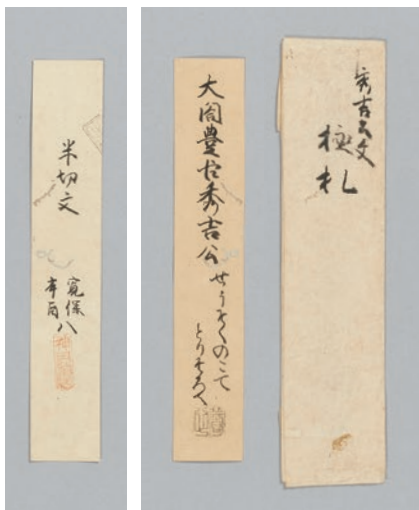 秀吉公文
極札
大閤豊臣秀吉公
せうそくのこて
とりそろへ
半切文
寛保
辛酉 八